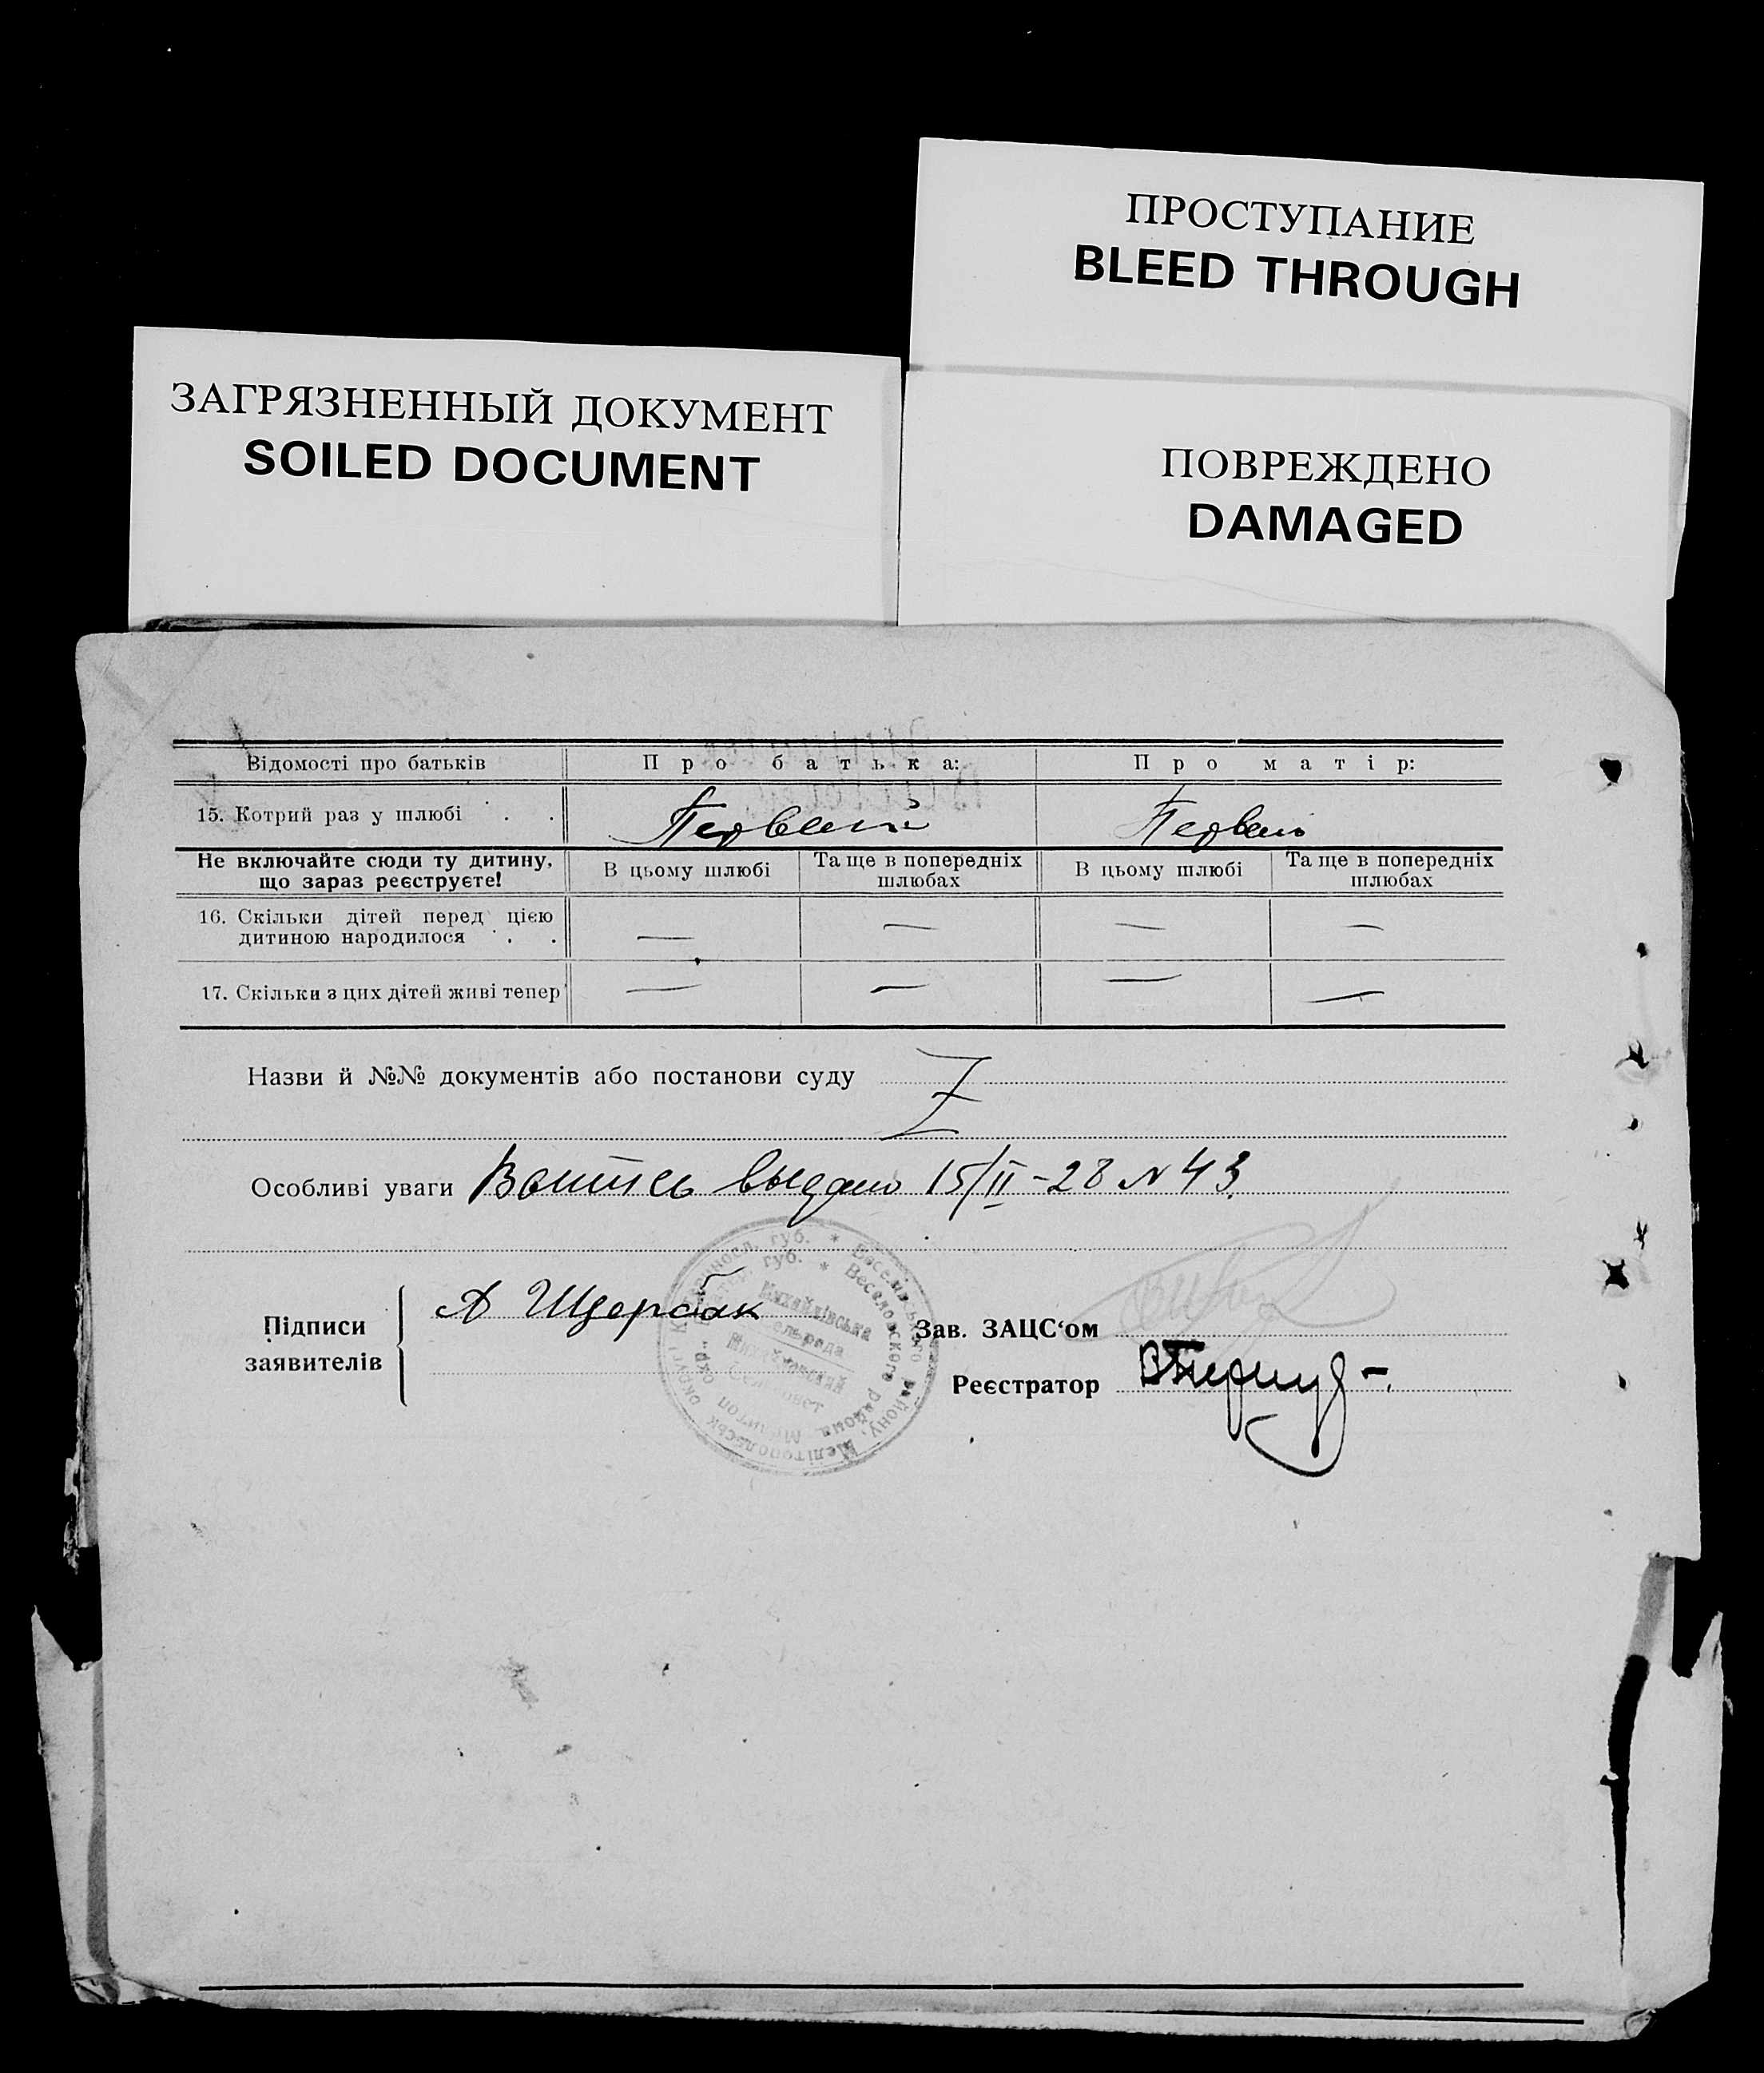 ПРОСТУПАНИЕ
BLEED THROUGH
ЗАГРЯЗНЕННЫЙ ДОКУМЕНТ
SOILED DOCUMENT
ПОВРЕЖДЕНО
DAMAGED
Відомості про батьків Про батька: Про матір:
15. Котрий раз у шлюбі . . Первый Первый
Не включайте сюди ту дитину, що зараз реєструєте! В цьому шлюбі Та ще в попередніх шлюбах В цьому шлюбі Та ще в попередніх шлюбах
16. Скільки дітей перед цією
дитиною народилося . . — — — —
17. Скільки з цих дітей живі тепер — — — —
Назви й №№ документів або постанови суду Z
Особливі уваги выдано 15/II-28 N 43.
Підписи
заявителів
А Щербак
Зав. ЗАЦС‘ом
Реєстратор
губ. * Веселівського району, Мелітопольськ округі
губ. * Веселовского района Мелитоп окр.
Михайлівська
сельрада
Михайловский
Сельсовет